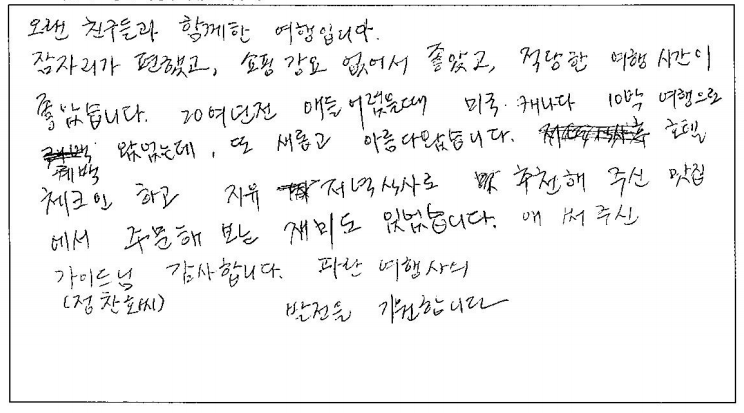 오랜 친구들과 함께한 여행입니다.
잠자리가 편했고, 쇼핑 강요 없어서 좋았고, 적당한 여행 시간이
좋았습니다. 20여년전 애들 어렸을때 미국. 캐나다 10박 여행으로
왔었는데, 또 새롭고 아름다왔습니다. 호텔
체크인 하고 자유 저녁식사로 추천해 주신 맛집
에서 주문해 보는 재미도 있었습니다. 애 써 주신
가이드님 감사합니다. 파란 여행사의
(정찬호씨) 발전을 기원합니다